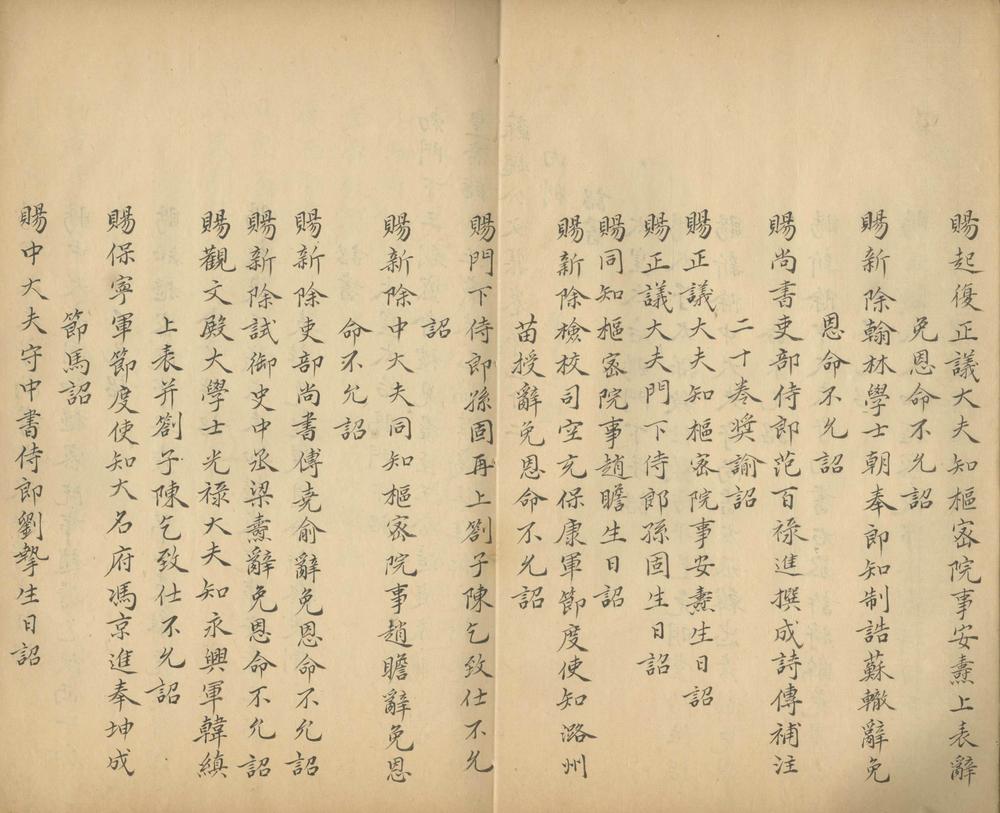 賜起復正議大夫知樞密院事安燾上表辭
免恩命不允詔
賜新除翰林學士朝奉郎知制誥蘇轍辭免
恩命不允詔
賜尚書吏部侍郎范百祿進撰成詩傳補注
二十卷奬諭詔
賜正議大夫知樞密院事安燾生日詔
賜正議大夫門下侍郎孫固生日詔
賜同知樞密院事趙瞻生日詔
賜新除檢校司空充保康軍節度使知潞州
苗授辭免恩命不允詔
賜門下侍郎孫固再上劄子陳乞致仕不允
詔
賜新除中大夫同知樞密院事趙瞻辭免恩
命不允詔
賜新除吏部尚書傅堯俞辭免恩命不允詔
賜新除試御史中丞梁燾辭免恩命不允詔
賜觀文殿大學士光禄大夫知永興軍韓縝
上表并劄子陳乞致仕不允詔
賜保寧軍節度使知大名府馮京進奉坤成
節馬詔
賜中大夫守中書侍郎劉摯生日詔